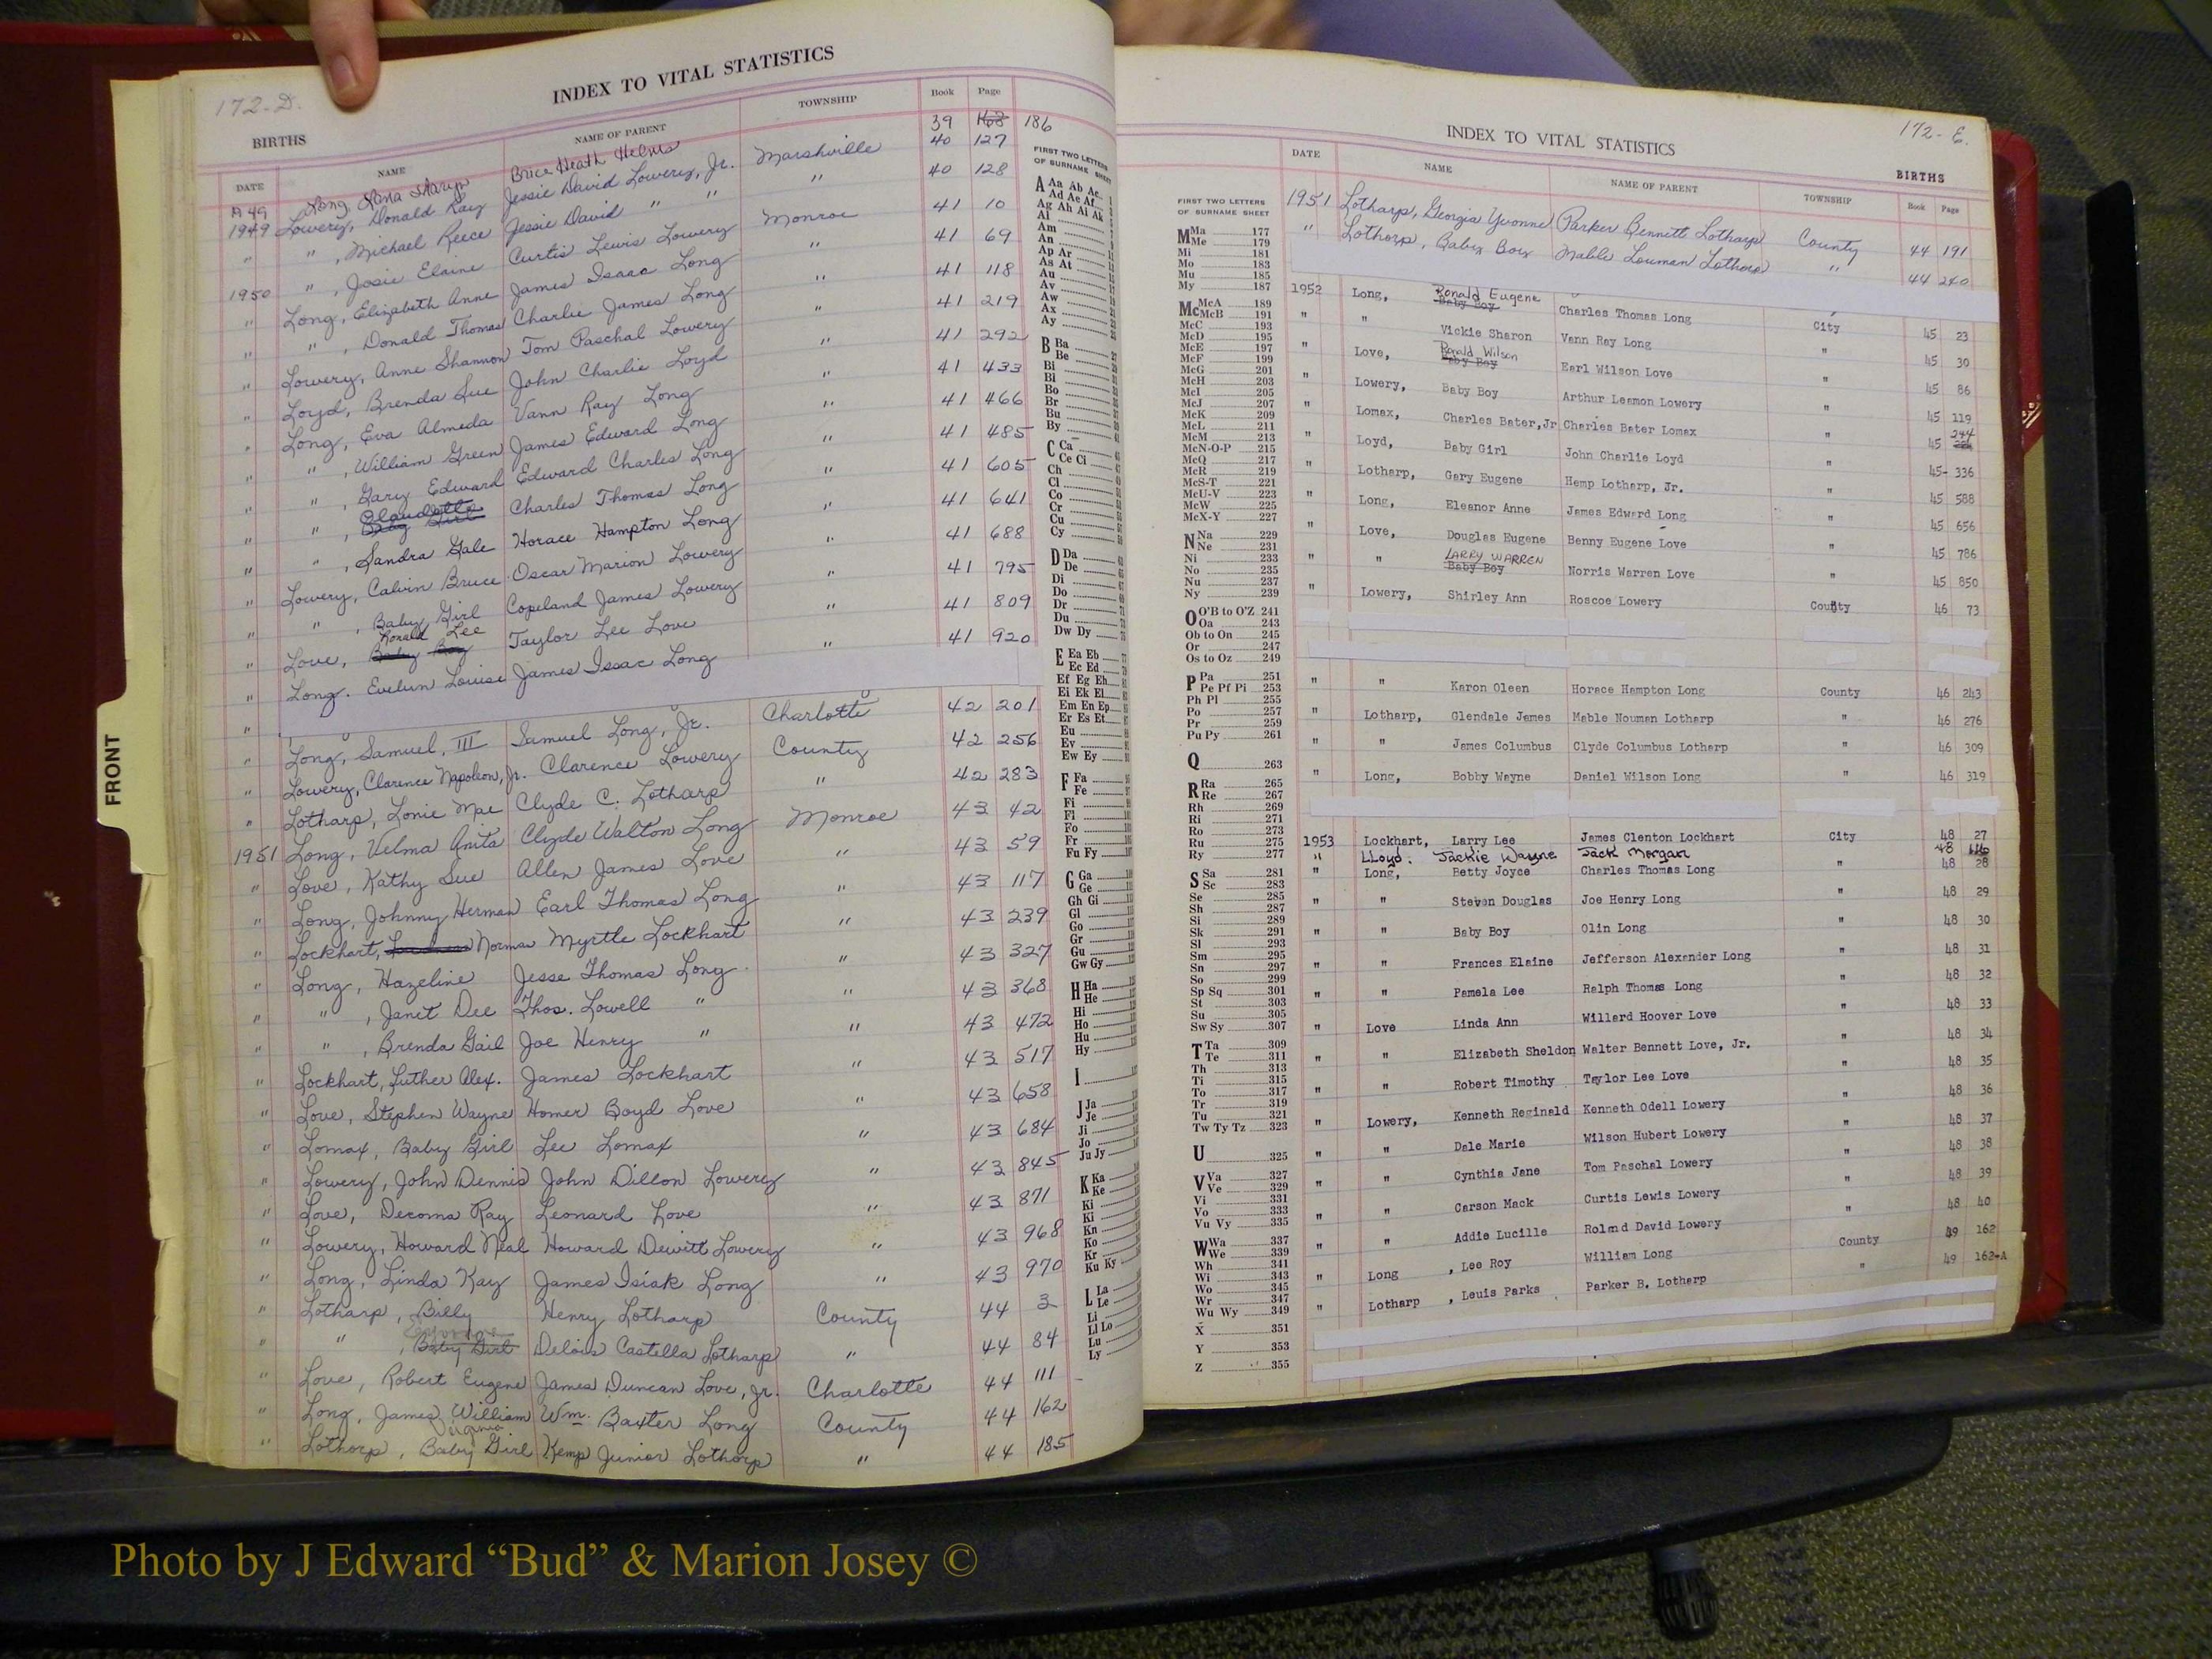 172-D.
INDEX TO VITAL STATISTICS
BIRTHS
DATE NAME NAME OF PARENT TOWNSHIP Book Page
A 49 Long, Brice Heath Helms 39 186
1949 Lowery, Donald Ray Jessie David Lowery, Jr. Marshville 40 127
" " , Michael Reece Jessie David " " " 40 128
1950 " , Josie Elaine Curtis Lewis Lowery Monroe 41 10
" Long, Elizabeth Anne James Isaac Long " 41 69
" " , Donald Thomas Charlie James Long " 41 118
" Lowery, Anne Shannon Tom Paschal Lowery " 41 219
" Loyd, Brenda Sue John Charlie Loyd " 41 292
" Long, Eva Almeda Vann Ray Long " 41 433
" " , William Green James Edward Long " 41 466
" " , Gary Edward Edward Charles Long " 41 485
" " , Claudette Baby Girl Charles Thomas Long " 41 605
" " , Sandra Gale Horace Hampton Long " 41 641
" Lowery, Calvin Bruce Oscar Marion Lowery " 41 688
" " , Baby Girl Copeland James Lowery " 41 795
" Love, Ronald Lee Baby Boy Taylor Lee Love " 41 809
" Long. Evelun Louise James Issac Long " 41 920
" Long, Samuel, III Samuel Long, Jr. Charlotte 42 201
" Lowery, Clarence Napoleon, Jr. Clarence Lowery County 42 256
" Lotharp, Lonie Mae Clyde C. Lotharp " 42 283
1951 Long, Velma Anita Clyde Walton Long Monroe 43 42
" Love, Kathy Sue Allen James Love " 43 59
" Long, Johnny Herman Earl Thomas Long " 43 117
" Lockhart, Norman Myrtle Lockhart " 43 239
" Long, Hazeline Jesse Thomas Long " 43 327
" " , Janet Dee Thos. Lowell " " 43 368
" " , Brenda Gail Joe Henry " " 43 472
" Lockhart, Luther Alex. James Lockhart " 43 517
" Love, Stephen Wayne Homer Boyd Love " 43 658
" Lomax, Baby Girl Lee Lomax " 43 684
" Lowery, John Dennis John Dillon Lowery " 43 845
" Love, Decoma Ray Leonard Love " 43 871
" Lowery, Howard Neal Howard Dewitt Lowery " 43 968
" Long, Linda Kay James Isiak Long " 43 970
" Lotharp, Billy Henry Lotharp County 44 3
" " , Baby Girl Delois Castella Lotharp " 44 84
" Love, Robert Eugene James Duncan Love, Jr. Charlotte 44 111
" Long, James William Wm. Baxter Long County 44 162
" Lothorp, Virginia Baby Girl Kemp Junior Lothorp " 44 185
FRONT
FIRST TWO LETTERS
OF SURNAME SHEET
A Aa Ab Ac
Ad Ae Af
Ag Ah Ai Ak
Al
Am
An
Ap Ar
As At
Au
Av
Aw
Ax
Ay
B Ba
Be
Bi
Bl
Bo
Br
Bu
By
C Ca
Ce Ci
Ch
Cl
Co
Cr
Cu
Cy
D Da
De
Di
Do
Dr
Du
Dw Dy
E Ea Eb
Ec Ed
Ef Eg Eh
Ei Ek El
Em En Ep
Er Es Et
Eu
Ev
Ew Ey
F Fa
Fe
Fi
Fl
Fo
Fr
Fu Fy
G Ga
Ge
Gh Gi
Gl
Go
Gr
Gu
Gw Gy
H Ha
He
Hi
Ho
Hu
Hy
I
J Ja
Je
Ji
Jo
Ju Jy
K Ka
Ke
Ki
Kl
Kn
Ko
Kr
Ku Ky
L La
Le
Li
Ll Lo
Lu
Ly
172-E.
INDEX TO VITAL STATISTICS
BIRTHS
DATE NAME NAME OF PARENT TOWNSHIP Book Page
FIRST TWO LETTERS
OF SURNAME SHEET
M Ma 177
Me 179
Mi 181
Mo 183
Mu 185
My 187
Mc McA 189
McB 191
McC 193
McD 195
McE 197
McF 199
McG 201
McH 203
McI 205
McJ 207
McK 209
McL 211
McM 213
McN-O-P 215
McQ 217
McR 219
McS-T 221
McU-V 223
McW 225
McX-Y 227
N Na 229
Ne 231
Ni 233
No 235
Nu 237
Ny 239
O O'B to O'Z 241
Oa 243
Ob to On 245
Or 247
Os to Oz 249
P Pa 251
Pe Pf Pi 253
Ph Pl 255
Po 257
Pr 259
Pu Py 261
Q 263
R Ra 265
Re 267
Rh 269
Ri 271
Ro 273
Ru 275
Ry 277
S Sa 281
Sc 283
Se 285
Sh 287
Si 289
Sk 291
Sl 293
Sm 295
Sn 297
So 299
Sp Sq 301
St 303
Su 305
Sw Sy 307
T Ta 309
Te 311
Th 313
Ti 315
To 317
Tr 319
Tu 321
Tw Ty Tz 323
U 325
V Va 327
Ve 329
Vi 331
Vo 333
Vu Vy 335
W Wa 337
We 339
Wh 341
Wi 343
Wo 345
Wr 347
Wu Wy 349
X 351
Y 353
Z 355
1951 Lotharp, Georgia Yvonne Parker Bennett Lotharp County 44 191
" Lothorp, Baby Boy Mable Louman Lothorp " 44 240
1952 Long, Ronald Eugene Baby Boy Charles Thomas Long City 45 23
" " Vickie Sharon Vann Ray Long " 45 30
" Love, Ronald Wilson Baby Boy Earl Wilson Love " 45 86
" Lowery, Baby Boy Arthur Leamon Lowery " 45 119
" Lomax, Charles Bater,Jr Charles Bater Lomax " 45 244
" Loyd, Baby Girl John Charlie Loyd " 45- 336
" Lotharp, Gary Eugene Hemp Lotharp, Jr. " 45 588
" Long, Eleanor Anne James Edward Long " 45 656
" Love, Douglas Eugene Benny Eugene Love " 45 786
" " LARRY WARREN Baby Boy Norris Warren Love " 45 850
" Lowery, Shirley Ann Roscoe Lowery County 46 73
" " Karon Oleen Horace Hampton Long County 46 243
" Lotharp, Glendale James Mable Nouman Lotharp " 46 276
" " James Columbus Clyde Columbus Lotharp " 46 309
" Long, Bobby Wayne Daniel Wilson Long " 46 319
1953 Lockhart, Larry Lee James Clenton Lockhart City 48 27
" LLoyd. Jackie Wayne Jack Morgan 48
" Long, Betty Joyce Charles Thomas Long 48 28
" " Steven Douglas Joe Henry Long " 48 29
" " Baby Boy Olin Long " 48 30
" " Frances Elaine Jefferson Alexander Long " 48 31
" " Pamela Lee Ralph Thomas Long " 48 32
" Love Linda Ann Willard Hoover Love " 48 33
" " Elizabeth Sheldon Walter Bennett Love, Jr. " 48 34
" " Robert Timothy Taylor Lee Love " 48 35
" Lowery, Kenneth Reginald Kenneth Odell Lowery " 48 36
" " Dale Marie Wilson Hubert Lowery " 48 37
" " Cynthia Jane Tom Paschal Lowery " 48 38
" " Carson Mack Curtis Lewis Lowery " 48 39
" " Addie Lucille Roland David Lowery " 48 40
" Long , Lee Roy William Long County 49 162
" Lotharp , Leuis Parks Parker B. Lotharp " 49 162-A
Photo by J Edward “Bud” & Marion Josey ©